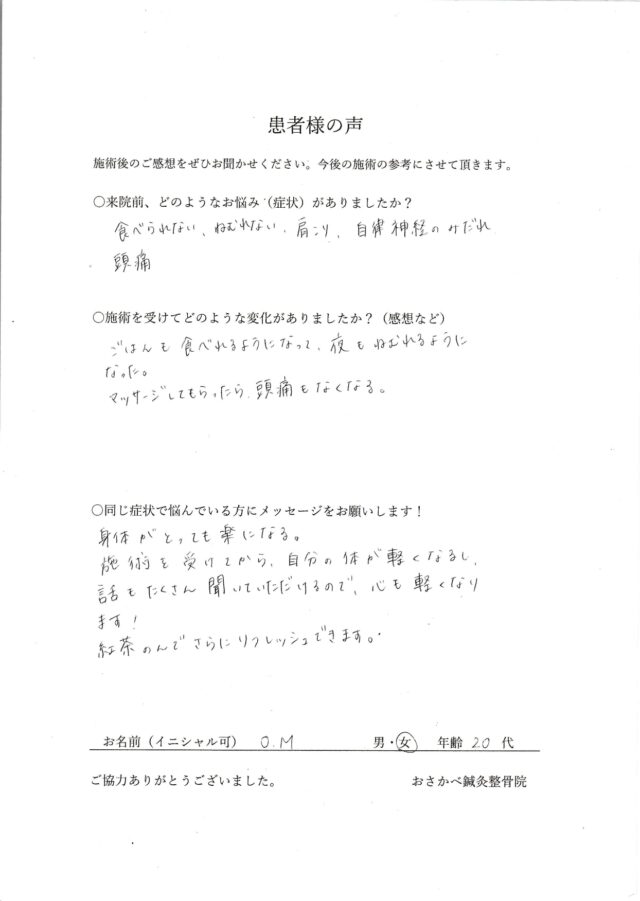 患者様の声
施術後のご感想をぜひお聞かせください。今後の施術の参考にさせて頂きます。
〇来院前、どのようなお悩み（症状）がありましたか？
食べられない、ねむれない、肩こり、自律神経のみだれ
頭痛
〇施術を受けてどのような変化がありましたか？（感想など）
ごはんも食べれるようになって、夜もねむれるように
なった。
マッサージしてもらったら、頭痛もなくなる。
〇同じ症状で悩んでいる方にメッセージをお願いします！
身体がとっても楽になる。
施術を受けてから、自分の体が軽くなるし、
話もたくさん聞いていただけるので、心も軽くなり
ます！
紅茶のんでさらにリフレッシュできます。
お名前（イニシャル可） O.M 男・女 年齢 20 代
ご協力ありがとうございました。 おさかべ鍼灸整骨院